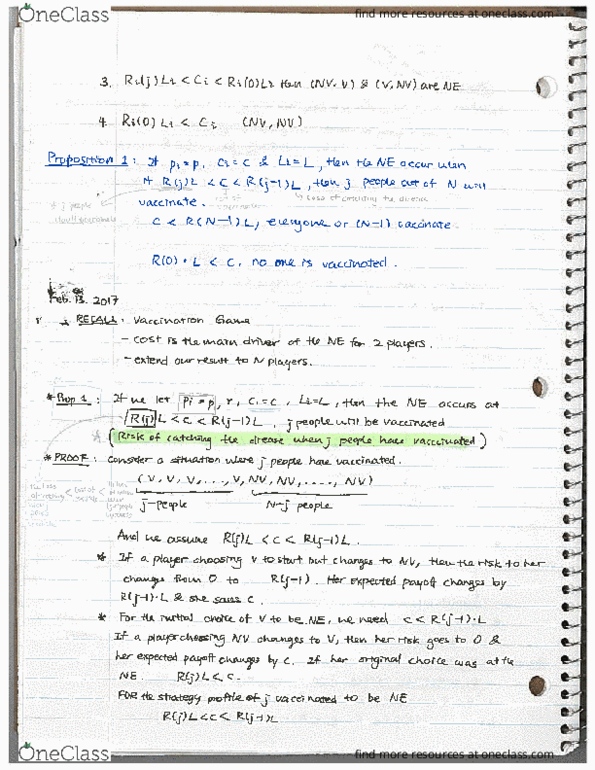 OneClass
find more resources at oneclass.com
3. Ri(j)Li < Ci < Ri(0)Li then (NV, V) & (V, NV) are NE
4. Ri(0) Li < Ci (NV, NV)
Proposition 1: If pi=p, ci=c & Li=L, then the NE occur when
if R(j)L < C < R(j-1)L, then j people out of N will
vaccinate.
if j people
C < R(N-1)L, everyone or (N-1) vaccinate.
R(0)·L < C, no one is vaccinated.
Feb. 13. 2017
RECALL: Vaccination Game
- cost is the main driver of the NE for 2 players.
- extend our result to N players.
* Prop 1: If we let pi=p, r, ci=c, Li=L, then the NE occurs at
R(j)L < C < R(j-1)L, j people will be vaccinated
(Risk of catching the disease when j people have vaccinated)
* PROOF: Consider a situation where j people have vaccinated.
(V, V, V, ..., V, NV, NV, ...., NV)
j-people N-j people
And we assume R(j)L < C < R(j-1)L.
* If a player choosing V to start but changes to NV, then the risk to her
changes from 0 to R(j-1). Her expected payoff changes by
R(j-1)·L & she saves C.
* For the initial choice of V to be NE, we need C < R(j-1)·L
If a player choosing NV changes to V, then her risk goes to 0 &
her expected payoff changes by C. If her original choice was at the
NE. R(j)L < C.
FOR the strategy profile of j vaccinated to be NE
R(j)L < C < R(j-1)L
OneClass
find more resources at oneclass.com